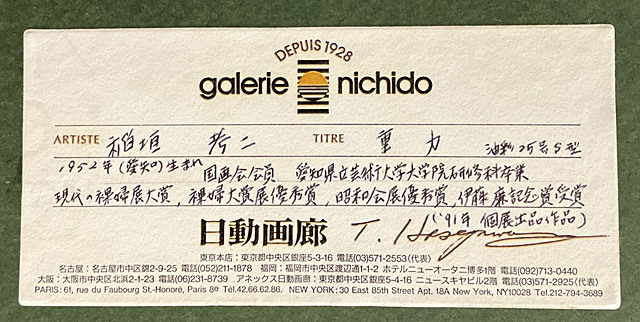 DEPUIS 1928
galerie nichido
ARTISTE 稲垣 考二 TITRE 重力 油彩 25号S型
1952年(愛知の)生まれ 国画会会員 愛知県立芸術大学大学院研修科卒業
現代の裸婦展大賞, 裸婦大賞展優秀賞, 昭和会展優秀賞, 伊藤廉記念賞受賞
('91年 個展出品作品)
日動画廊 T. Hasegawa
東京本店:東京都中央区銀座5-3-16 電話(03)571-2553〈代表〉
名古屋:名古屋市中区錦2-9-25 電話(052)211-1878 福岡:福岡市中央区渡辺通1-1-2 ホテルニューオータニ博多1階 電話(092)713-0440
大阪:大阪市中央区北浜2-1-23 電話(06)231-8739 アネックス日動画廊:東京都中央区銀座5-4-16 ニュースキヤビル2階 電話(03)571-2925〈代表〉
PARIS: 61, rue du Faubourg St.-Honoré, Paris 8e Tél.42.66.62.86. NEW YORK: 30 East 85th Street Apt. 18A New York, NY10028 Tel.212-794-3689